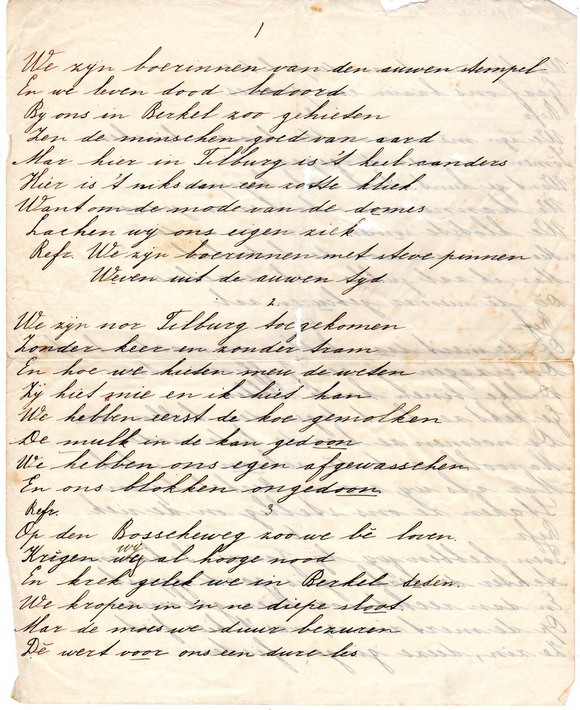 1
We zijn boerinnen van den auwen stempel
En we leven dood bedoord
By ons in Berkel zoo gehieten
Zen de minschen goed van aard
Mar hier in Tilburg is 't heel aanders
Hier is 't niks dan een zotte kliek
Want om de mode van de domes
Lachen wy ons eigen ziek
Refr. We zijn boerinnen met steve pinnen
Weven uit de auwen tyd
2
We zijn nor Tilburg toegekomen
Zonder keer en zonder tram
En hoe we hieten meu de weten
Zij hiet mie en ik hiet han
We hebben eerst de koe gemolken
De mulk in de kan gedoon
We hebben ons egen afgewasschen
En ons blokken ongedoon
Refr. 3
Op den Bosscheweg zoo we bè loven
Krigen wy al hooge nood
En krek gelek we in Berkel deden
We kropen in 'n ne diepe sloot
Mar de moes we duur bezuren
Dè wert voor ons een dure les